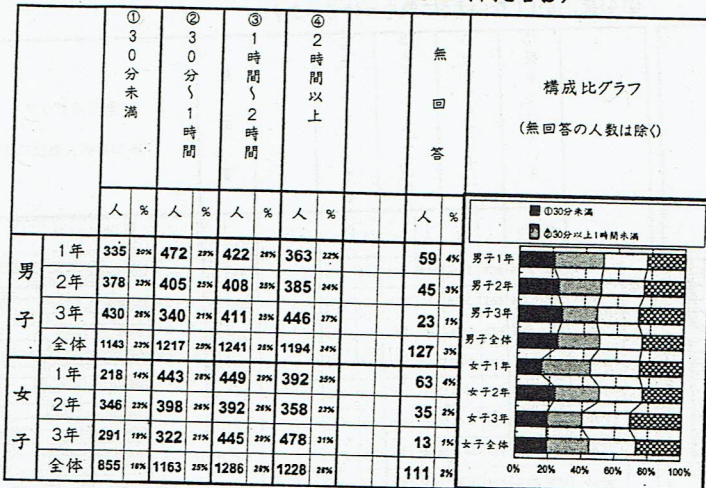 ①30分未満 ②30分〜1時間 ③1時間〜2時間 ④2時間以上 無回答 構成比グラフ
(無回答の人数は除く)
人 % 人 % 人 % 人 % 人 %
男子
1年 335 20% 472 29% 422 26% 363 22% 59 4%
2年 378 23% 405 25% 408 25% 385 24% 45 3%
3年 430 26% 340 21% 411 25% 446 27% 23 1%
全体 1143 23% 1217 25% 1241 25% 1194 24% 127 3%
女子
1年 218 14% 443 28% 449 29% 392 25% 63 4%
2年 346 23% 398 26% 392 26% 358 23% 35 2%
3年 291 19% 322 21% 445 29% 478 31% 13 1%
全体 855 18% 1163 25% 1286 28% 1228 26% 111 2%
①30分未満
②30分以上1時間未満
男子1年
男子2年
男子3年
男子全体
女子1年
女子2年
女子3年
女子全体
0% 20% 40% 60% 80% 100%